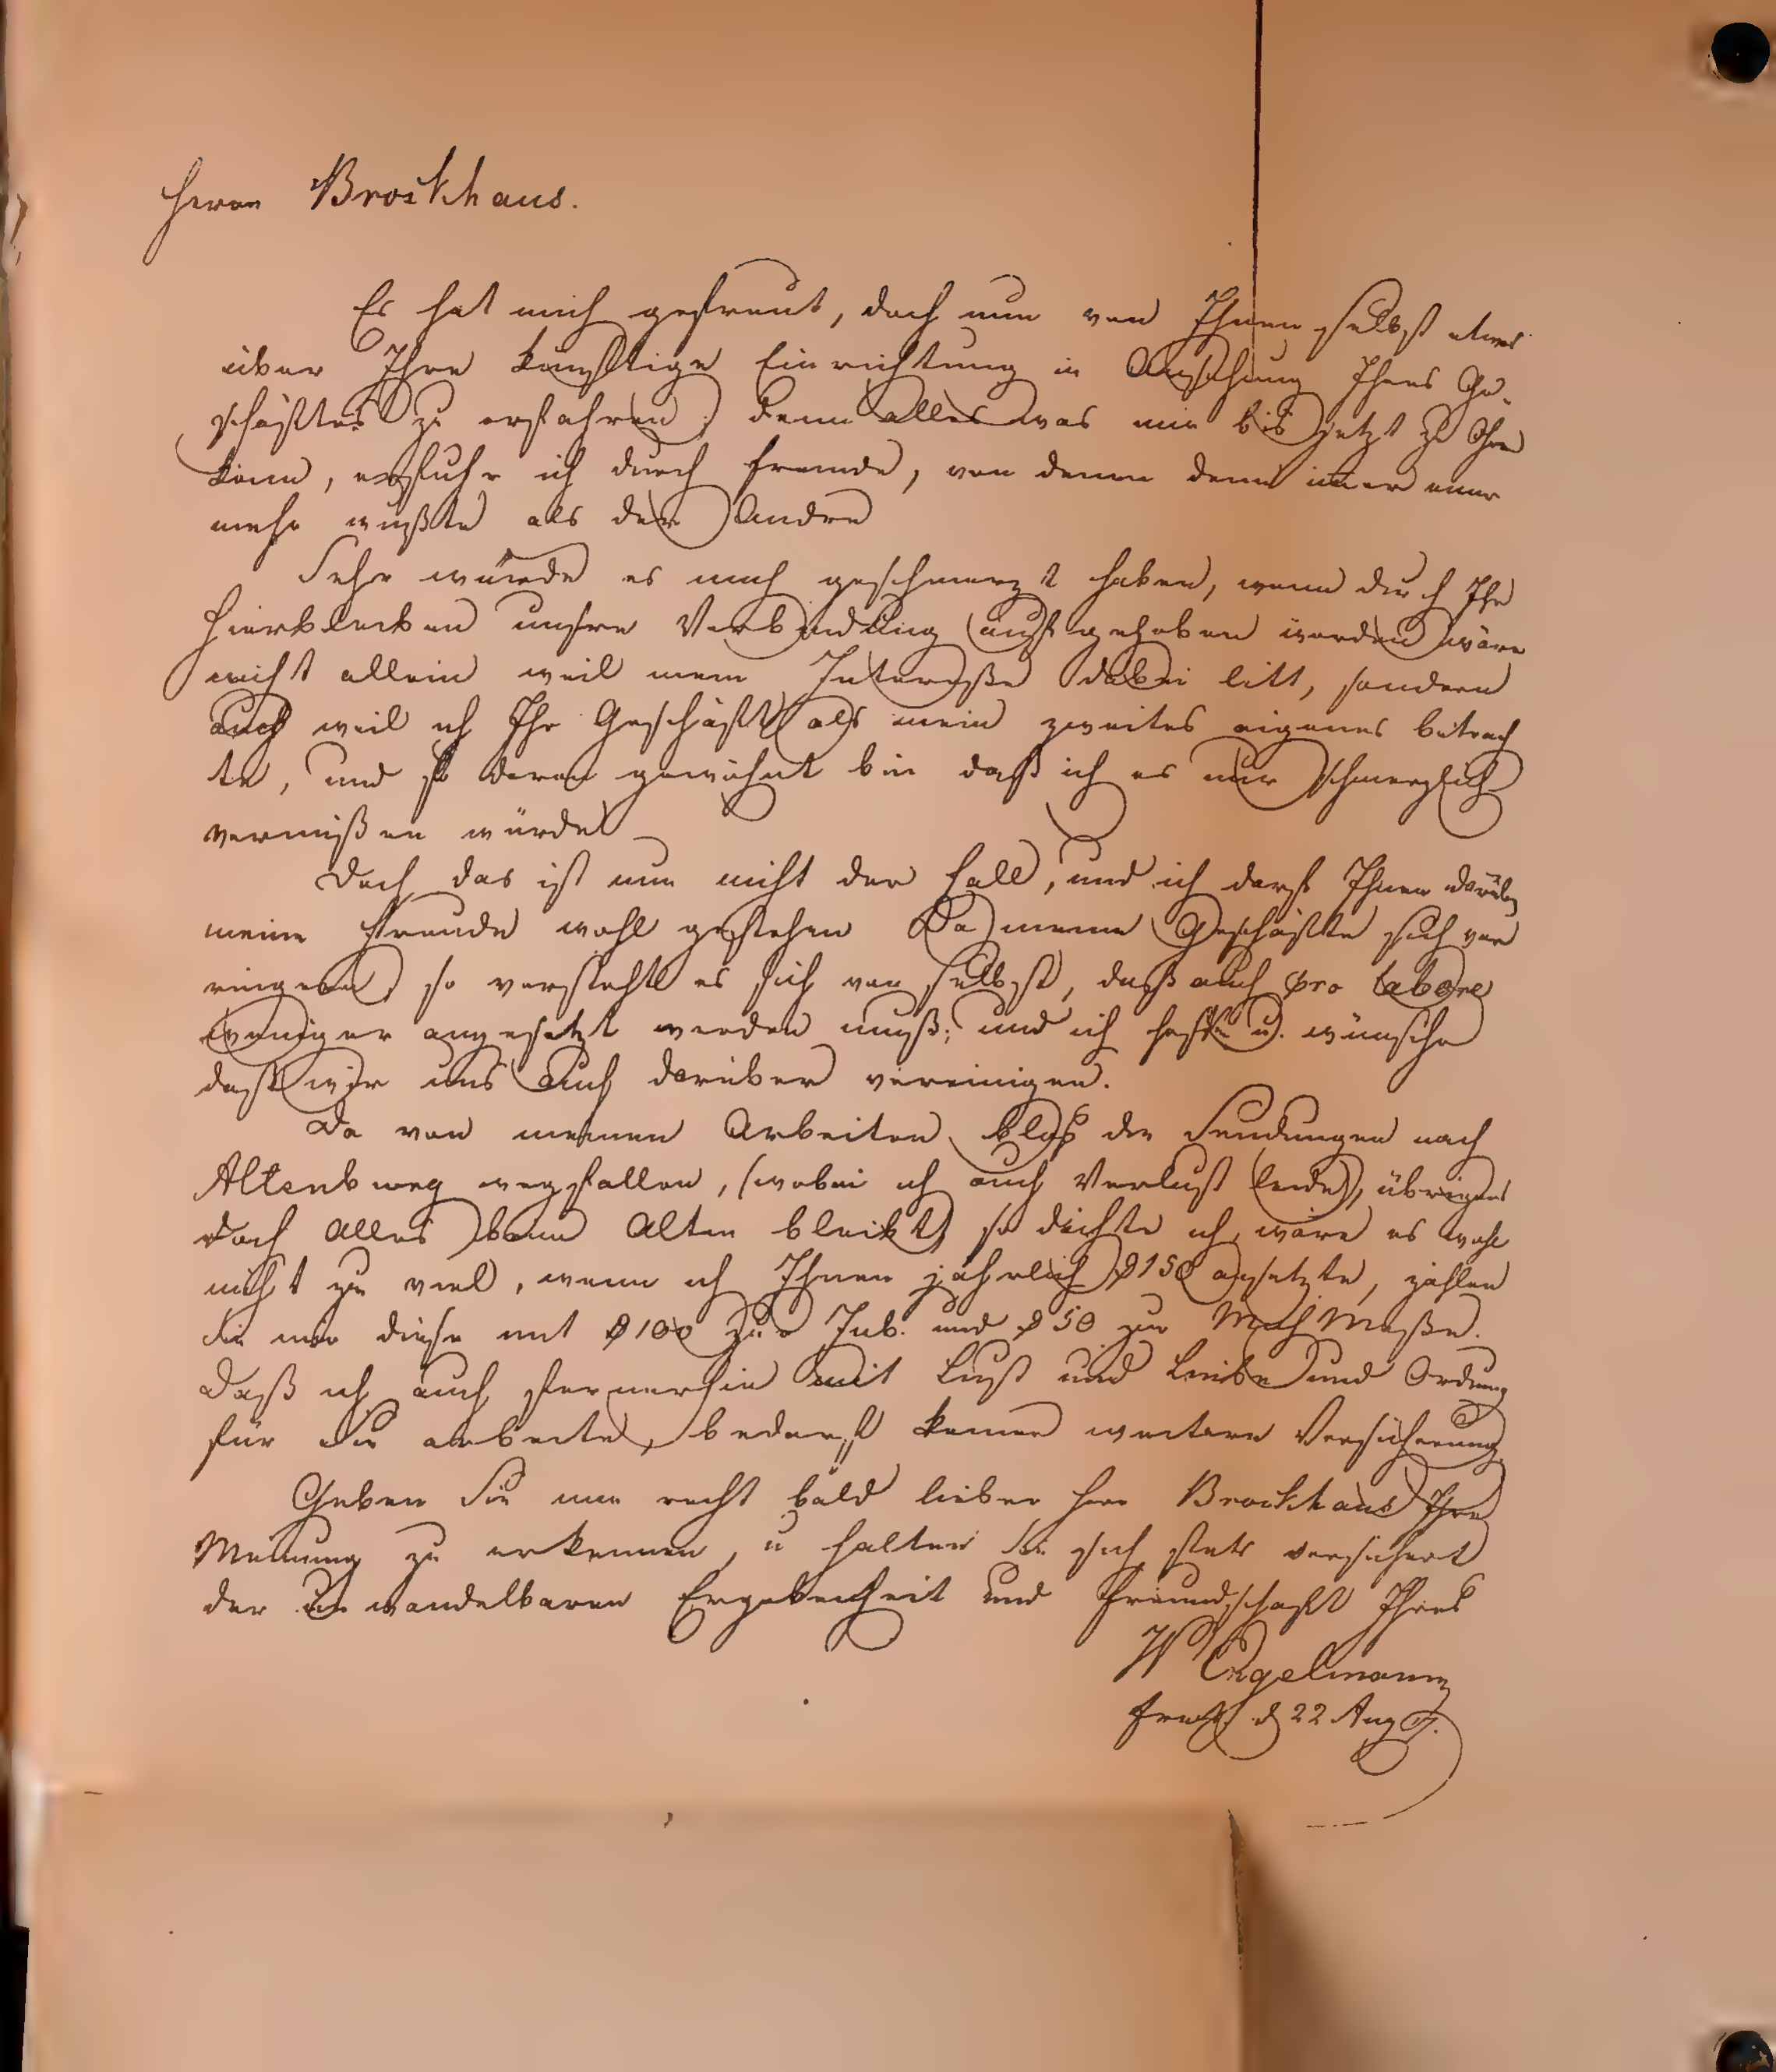 Herrn Brockhaus.
Es hat mich gefreut, doch nun von Ihnen selbst etwas
über Ihre künftige Einrichtung in Ansehung Ihres Ge-
schäftes zu erfahren; denn alles was mir bis jetzt zu Ohren
kam, erfuhr ich durch Fremde, von denen denn im̄er einer
mehr wußte als der Andre
Sehr würde es mich geschmerzt haben, wenn durch Ihr
Hierbleiben unsre Verbindung aufgehoben worden wäre
nicht allein weil mein Intereße dabei litt, sondern
auch weil ich Ihr Geschäft als mein zweites eigenes betrach
te, und so daran gewöhnt bin daß ich es nur schmerzlich
vermißen würde
Doch das ist nun nicht der Fall, und ich darf Ihnen darüber
meine Freude wohl gestehen Da meine Geschäfte sich ver
ringern, so versteht es sich von selbst, daß auch pro labore
weniger angesetzt werden muß; und ich hoffe u. wünsche
daß wir uns auch darüber vereinigen.
Da von meinen Arbeiten blos die Sendungen nach
Altenburg wegfallen, (wobei ich auch Verlust leide), übrigens
doch Alles beim Alten bleibt, so dächte ich, wäre es wohl
nicht zu viel, wenn ich Ihnen jährlich 150 ansetzte, zahlen
Sie mir diese mit 100 zur Jub. und 50 zur Mich Meße.
Daß ich auch fernerhin mit Lust und Liebe und Ordnung
für Sie arbeite, bedarf keiner weitern Versicherung
Geben Sie mir recht bald lieber Herr Brockhaus Ihre
Meinung zu erkennen, u halten Sie sich stets versichert
der unwandelbaren Ergebenheit und Freundschaft Ihres
W Engelmann
d 22 Aug 17.